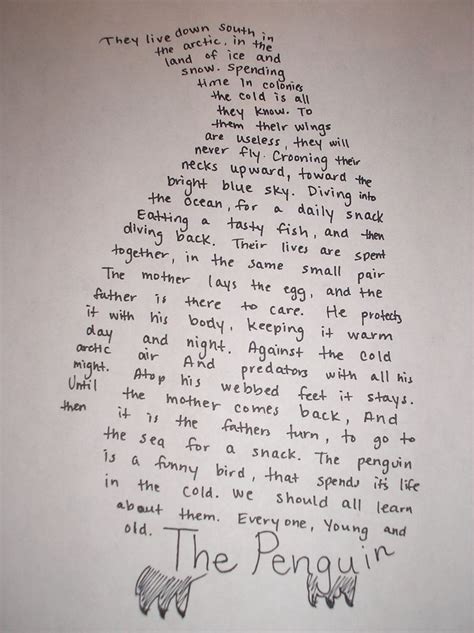 They live down South in
the arctic, in the
land of ice and
snow. Spending
time In colonies
the cold is all
they know. To
them their wings
are useless, they will
never fly. Crooning their
necks upward, toward the
bright blue sky. Diving into
the ocean, for a daily snack
Eatting a tasty fish, and then
diving back. Their lives are spent
together, in the same small pair
The mother lays the egg, and the
father is there to care. He protects
it with his body, keeping it warm
day and night. Against the cold
arctic air And predators with all his
might. Atop his webbed feet it stays.
Until the mother comes back, And
then it is the fathers turn, to go to
the sea for a snack. The penguin
is a funny bird, that spends it's life
in the cold. We should all learn
about them. Everyone, Young and
old.
The Penguin